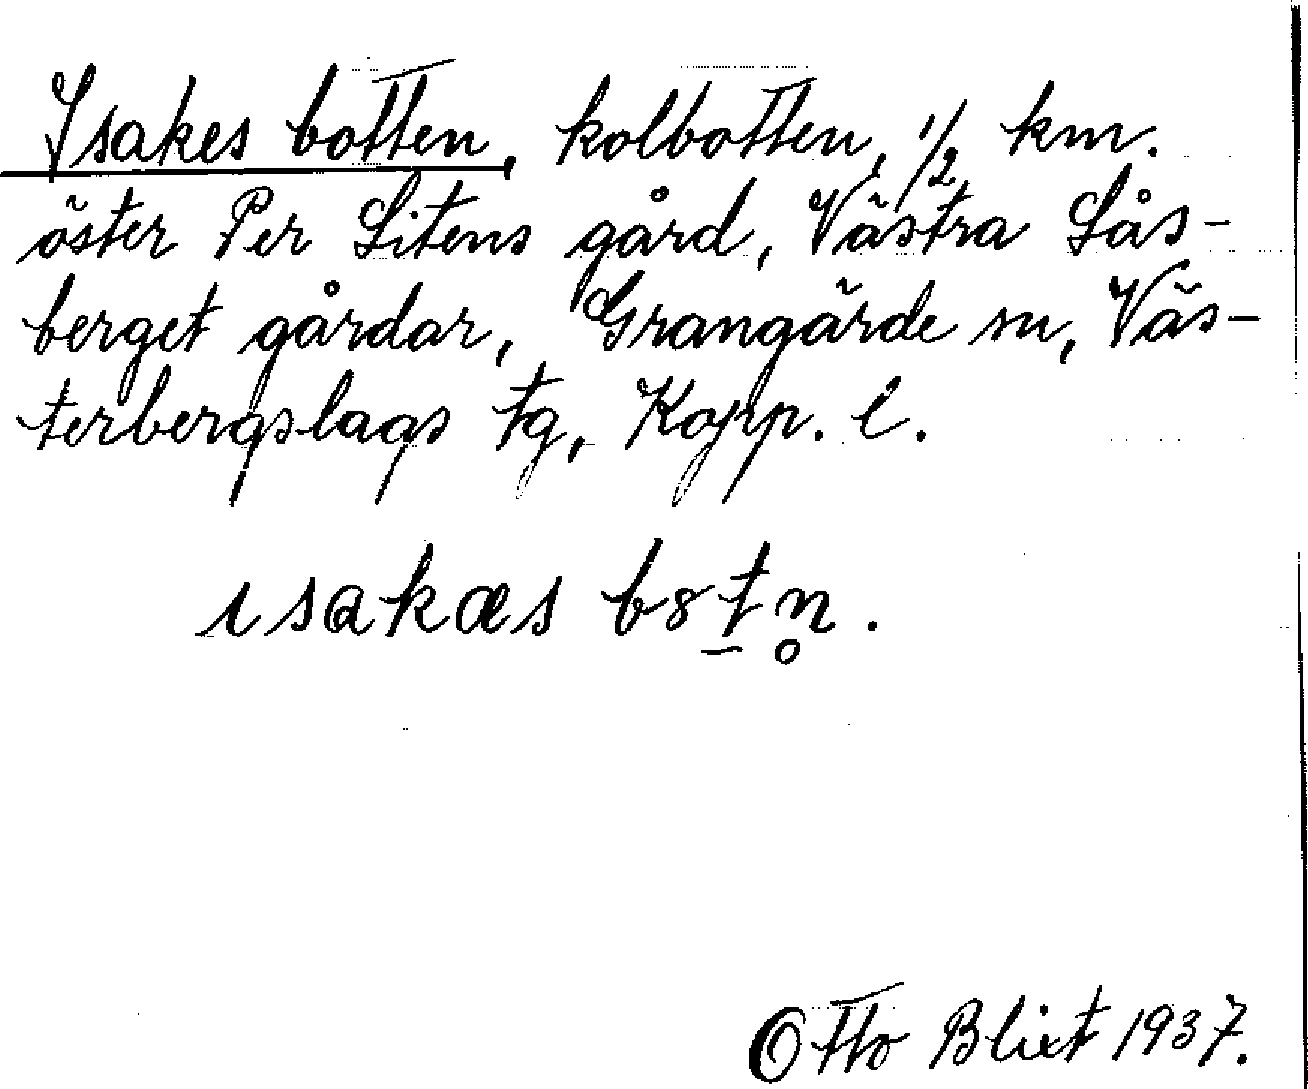 Isakes botten, kolbotten, 1/2 km.
öster Per Litens gård, Västra Lås-
berget gårdar, Grangärde sn, Väs-
terbergslags tg, Kopp. l.
ısakæs b8t̲n̥.
Otto Blixt 1937.